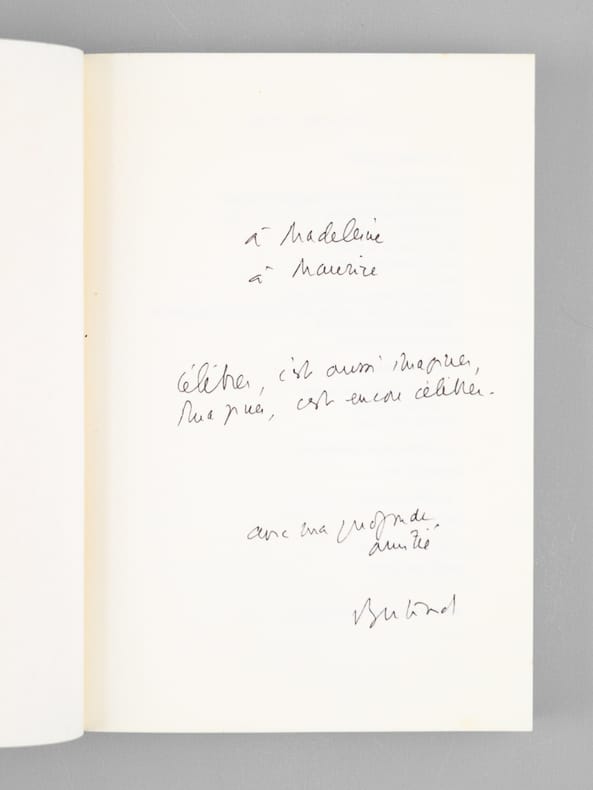 à Madeleine
à Maurice
célébrer, c'est aussi imaginer,
Imaginer, c'est encore célébrer.
avec ma profonde
amitié
Bertrand